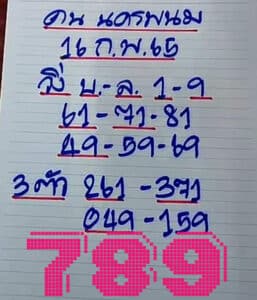 คน นครพนม
16 ก.พ.65
วิ่ง บ.-ล. 1-9
61-71-81
49-59-69
3 ตัว 261-371
049-159
789